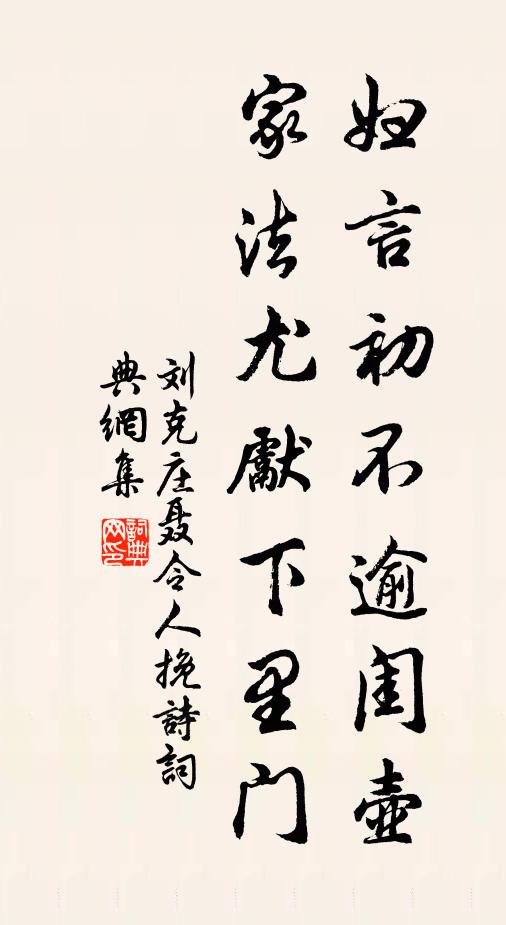 妇言初不逾闺壶
家法尤献下里门
刘克庄聂令人挽詩詞
典網集
詞典
网印